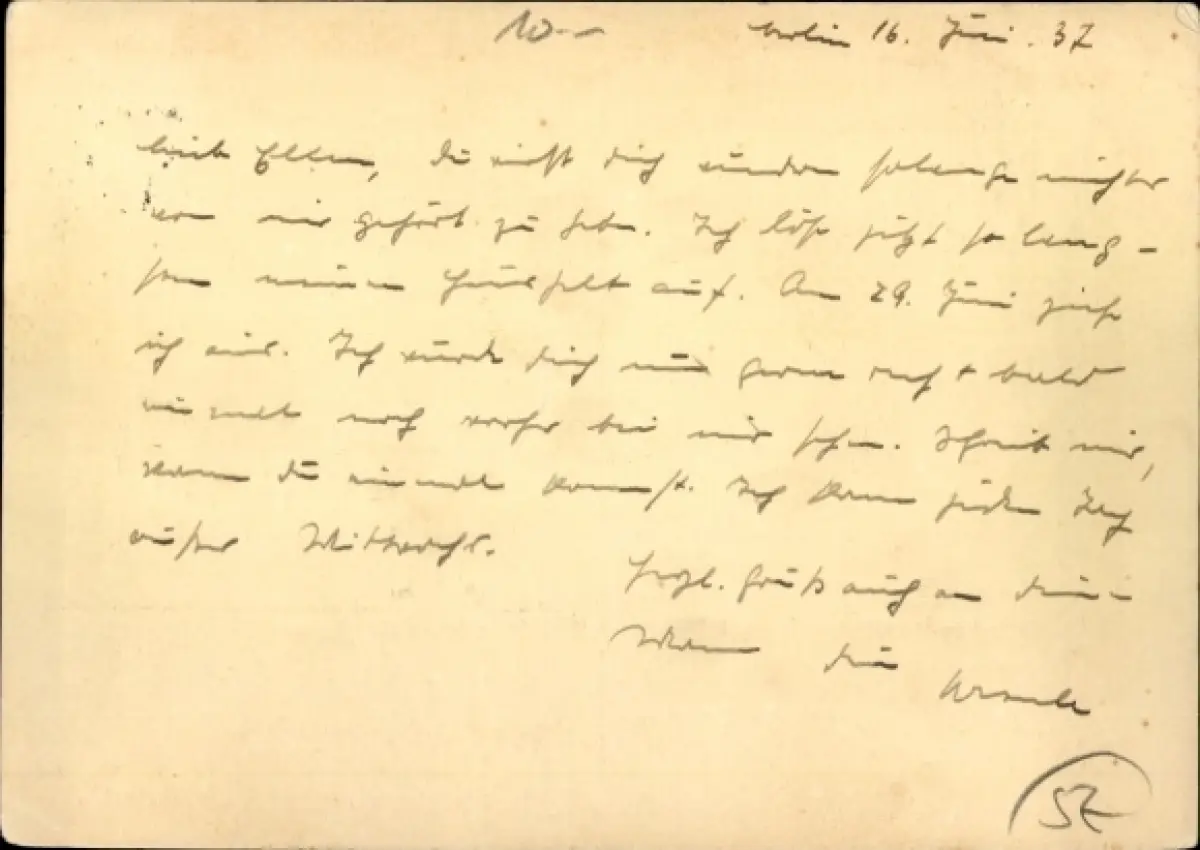 10.-
Berlin 16. Juni. 37
Liebe Ellen, du wirst dich wundern solange nichts
von mir gehört zu haben. Ich löse jetzt so lang-
sam meinen Haushalt auf. Am 29. Juni ziehe
ich aus. Ich würde dich nun gerne recht bald
einmal noch vorher bei mir sehen. Schreib mir,
wann du einmal kommst. Ich kann jeden Tag
außer Mittwochs.
Herzl. Gruß auch an deinen
Mann deine Ursula
57